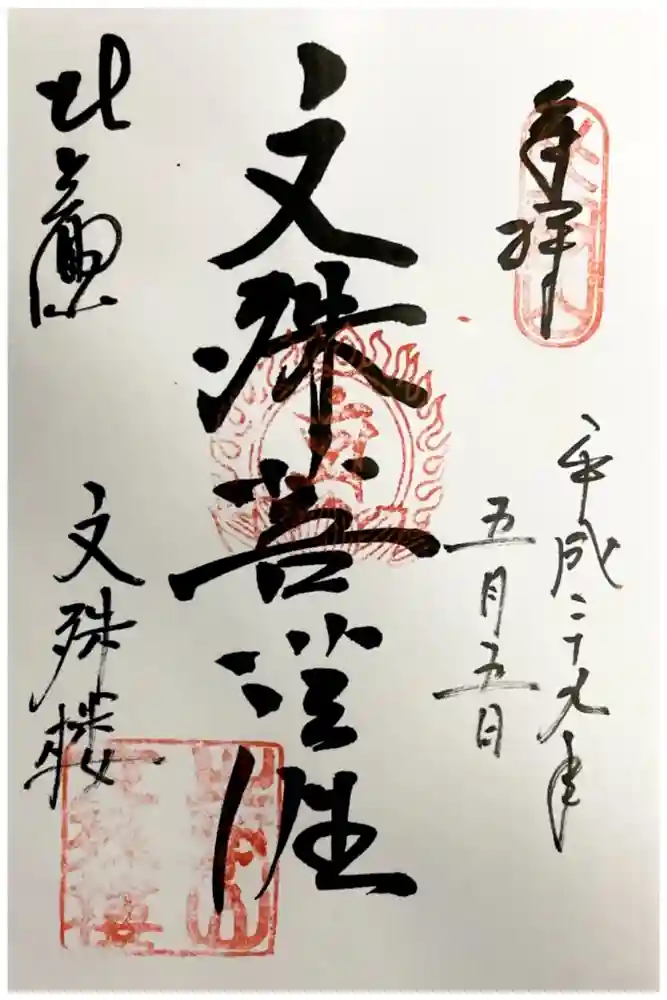 奉拝
平成二十九年
五月五日
文殊菩薩
比叡
文殊楼